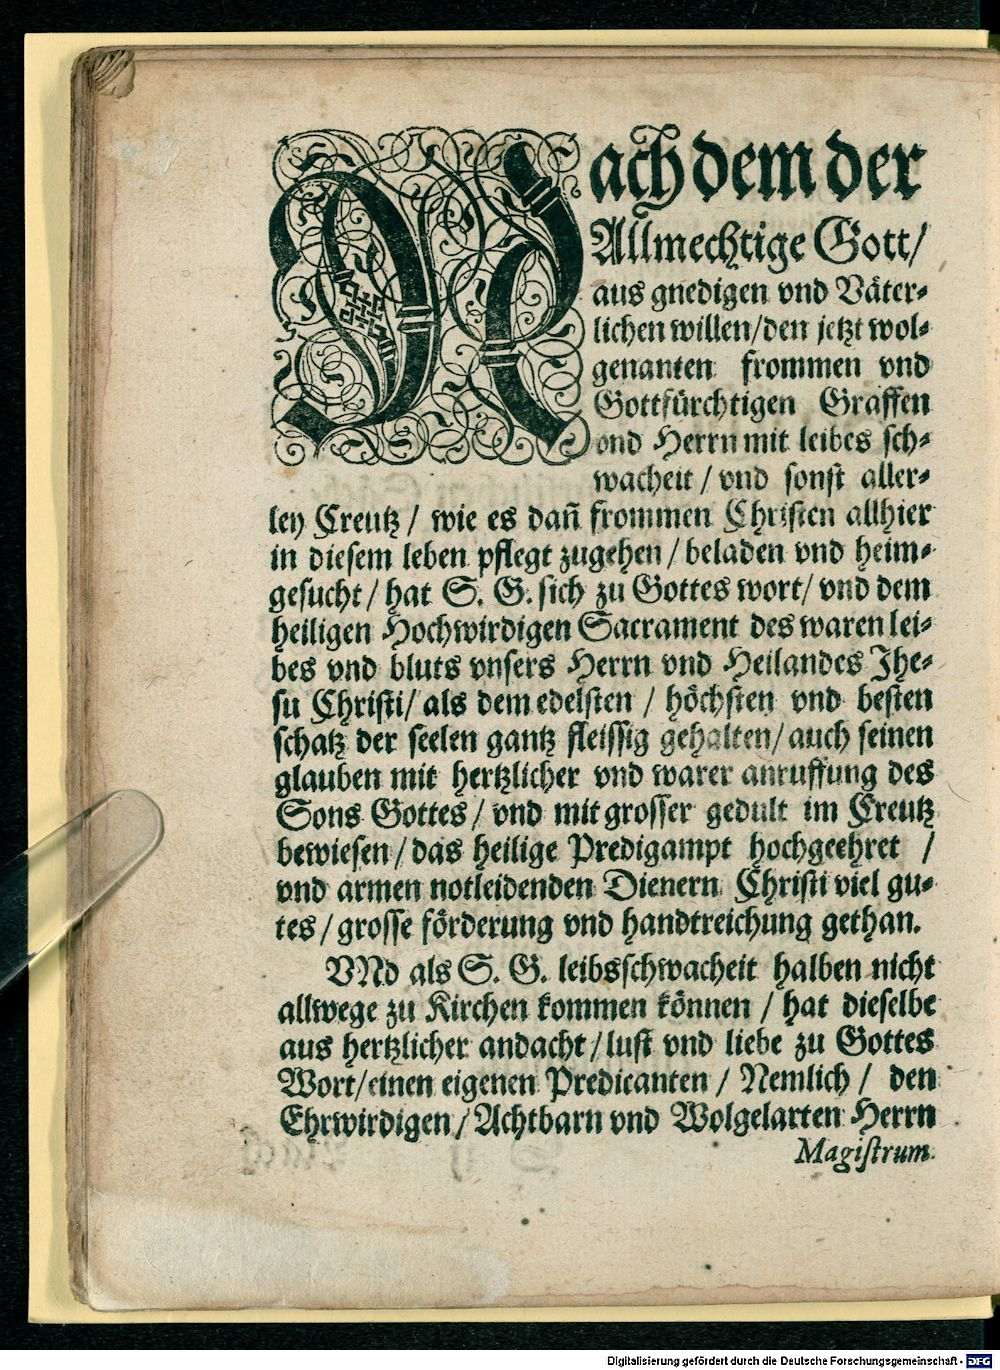 Nach dem der
Allmechtige Gott/
aus gnedigen vnd Väter⸗
lichen willen/den jetzt wol⸗
genanten frommen vnd
Gottfürchtigen Graffen
vnd Herrn mit leibes sch⸗
wacheit / vnd sonst aller⸗
ley Creutz / wie es dañ frommen Christen allhier
in diesem leben pflegt zugehen / beladen vnd heim⸗
gesucht / hat S. G. sich zu Gottes wort/ vnd dem
heiligen Hochwirdigen Sacrament des waren lei⸗
bes vnd bluts vnsers Herrn vnd Heilandes Jhe⸗
su Christi/ als dem edelsten / höchsten vnd besten
schatz der seelen gantz fleissig gehalten/ auch seinen
glauben mit hertzlicher vnd warer anruffung des
Sons Gottes / vnd mit grosser gedult im Creutz
bewiesen / das heilige Predigampt hochgeehret /
vnd armen notleidenden Dienern Christi viel gu⸗
tes / grosse förderung vnd handtreichung gethan.
VNd als S. G. leibsschwacheit halben nicht
allwege zu Kirchen kommen können / hat dieselbe
aus hertzlicher andacht / lust vnd liebe zu Gottes
Wort/einen eigenen Predicanten / Nemlich / den
Ehrwirdigen / Achtbarn vnd Wolgelarten Herrn
Magistrum.
Digitalisierung gefördert durch die Deutsche Forschungsgemeinschaft - DFG